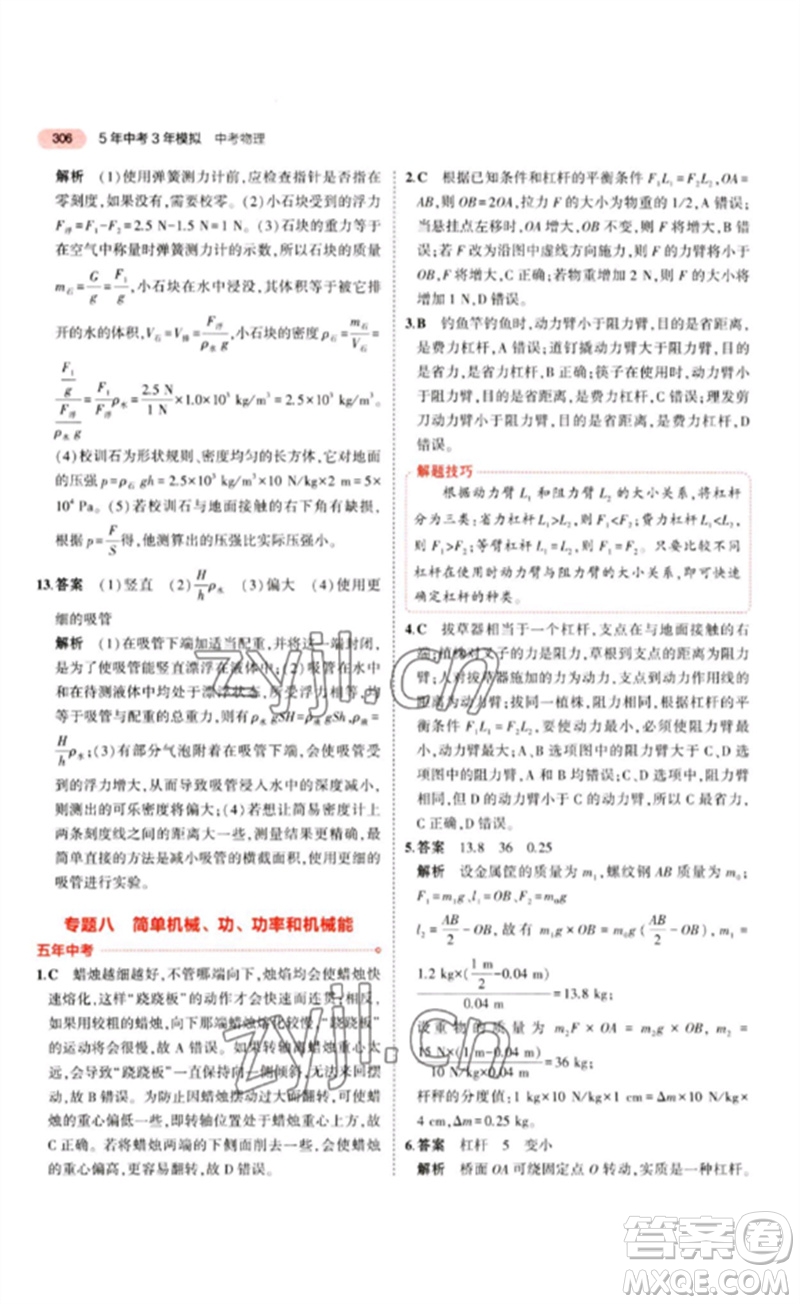 306 5年中考3年模拟 中考物理
解析 (1)使用弹簧测力计前,应检查指针是否指在
零刻度,如果没有,需要校零。(2)小石块受到的浮力
F浮=F1-F2=2.5 N-1.5 N=1 N。(3)石块的重力等于
在空气中称量时弹簧测力计的示数,所以石块的质量
m石=G/g=F1/g,小石块在水中浸没,其体积等于它排
开的水的体积,V石=V排=F浮/ρ水g,小石块的密度ρ石=m石/V石=
(F1/g)/(F浮/ρ水g)=F1/F浮 ρ水=2.5 N/1 N×1.0×10³ kg/m³=2.5×10³ kg/m³。
(4)校训石为形状规则、密度均匀的长方体,它对地面
的压强p=ρ石gh=2.5×10³ kg/m³×10 N/kg×2 m=5×
10⁴ Pa。(5)若校训石与地面接触的右下角有缺损,
根据p=F/S可知,他测算出的压强比实际压强小。
13.答案 (1)竖直 (2)H/h ρ水 (3)偏大 (4)使用更
细的吸管
解析 (1)在吸管下端加适当配重,并将这一端封闭,
是为了使吸管能竖直漂浮在液体中;(2)吸管在水中
和在待测液体中均处于漂浮状态,所受浮力一样,均
等于吸管与配重的总重力,则有ρ水gSH=ρ液gSh,ρ液=
H/h ρ水;(3)有部分气泡附着在吸管下端,会使吸管受
到的浮力增大,从而导致吸管浸入水中的深度减小,
则测出的可乐密度将偏大;(4)若想让简易密度计上
两条刻度线之间的距离大一些,测量结果更精确,最
简单直接的方法是减小吸管的横截面积,使用更细的
吸管进行实验。
专题八 简单机械、功、功率和机械能
五年中考
1.C 蜡烛越细越好,不管哪端向下,烛焰均会使蜡烛快
速熔化,这样“跷跷板”的动作才会快速而连贯;相反,
如果用较粗的蜡烛,则两端蜡烛熔化较慢,“跷跷板”
的运动将会很慢,故A错误。如果转轴离蜡烛重心较
远,蜡烛将保持向一侧倾斜,无法形成“跷跷板”,故B
错误。为防止因蜡烛摆动过大而翻转,应使蜡烛
的重心偏低一些,故应将转轴安置于蜡烛重心的上方,
C正确。若将蜡烛两端的下侧面削去一些,会使蜡烛
的重心偏高,更容易翻转,故D错误。
2.C 根据已知条件和杠杆的平衡条件F1L1=F2L2,OA=
AB,则OB=2OA,拉力F的大小为物重的1/2,A错误;
当悬挂点左移时,OA增大,OB不变,F将增大,B错
误;若F改为沿图中虚线方向施力,则F的力臂将小于
OB,F将增大,C正确;若物重增加2 N,则F的大小将
增加1 N,D错误。
3.B 钓鱼竿钓鱼时,动力臂小于阻力臂,目的是省距离,
是费力杠杆,A错误;道钉撬动力臂大于阻力臂,目的
是省力,是省力杠杆,B正确;筷子在使用时,动力臂小
于阻力臂,目的是省距离,是费力杠杆,C错误;理发剪
刀动力臂小于阻力臂,目的是省距离,是费力杠杆,D
错误。
解题技巧
根据动力臂L1和阻力臂L2的大小关系,将杠杆
分为三类:省力杠杆L1>L2,则F1<F2;费力杠杆L1<L2,
则F1>F2;等臂杠杆L1=L2,则F1=F2。只要比较不同
杠杆在使用时动力臂与阻力臂的大小关系,即可快速
确定杠杆的种类。
4.C 拔草器相当于一个杠杆,支点在与地面接触的右
端,植株对叉子的力是阻力,草根到支点的距离即为阻
力臂;人对拔草器施加的力为动力,支点到动力作用线的
距离为动力臂;拔同一植株,阻力大小相同,根据杠杆的平
衡条件F1L1=F2L2,要使动力最小,必须使阻力臂
最小,动力臂最大;A、B选项图中的阻力臂相同,都大
于C选项图中的阻力臂;C、D选项图中,阻力臂相同,
但C中的动力臂大于D的动力臂,所以C最省力,
C正确,D错误。
5.答案 13.8 36 0.25
解析 设金属筐的质量为m1,螺纹钢AB质量为m2,
F1=m1g,l1=OB,F2=m2g,
l2=AB/2-OB,故有m1g×OB=m2g×(AB/2-OB),m2=
1.2 kg×(1 m/2-0.04 m)/0.04 m=13.8 kg;
设重物的质量为
=36 kg;
杆秤的分度值:1 kg×10 N/kg×Δm=1 kg×10 N/kg×
4 cm,Δm=0.25 kg。
6.答案 杠杆 5 变小
解析 桥面OA可绕固定点O转动,实质是一种杠杆。
zyjl.cn
zyjl.cn
答案圈
MXQE.COM